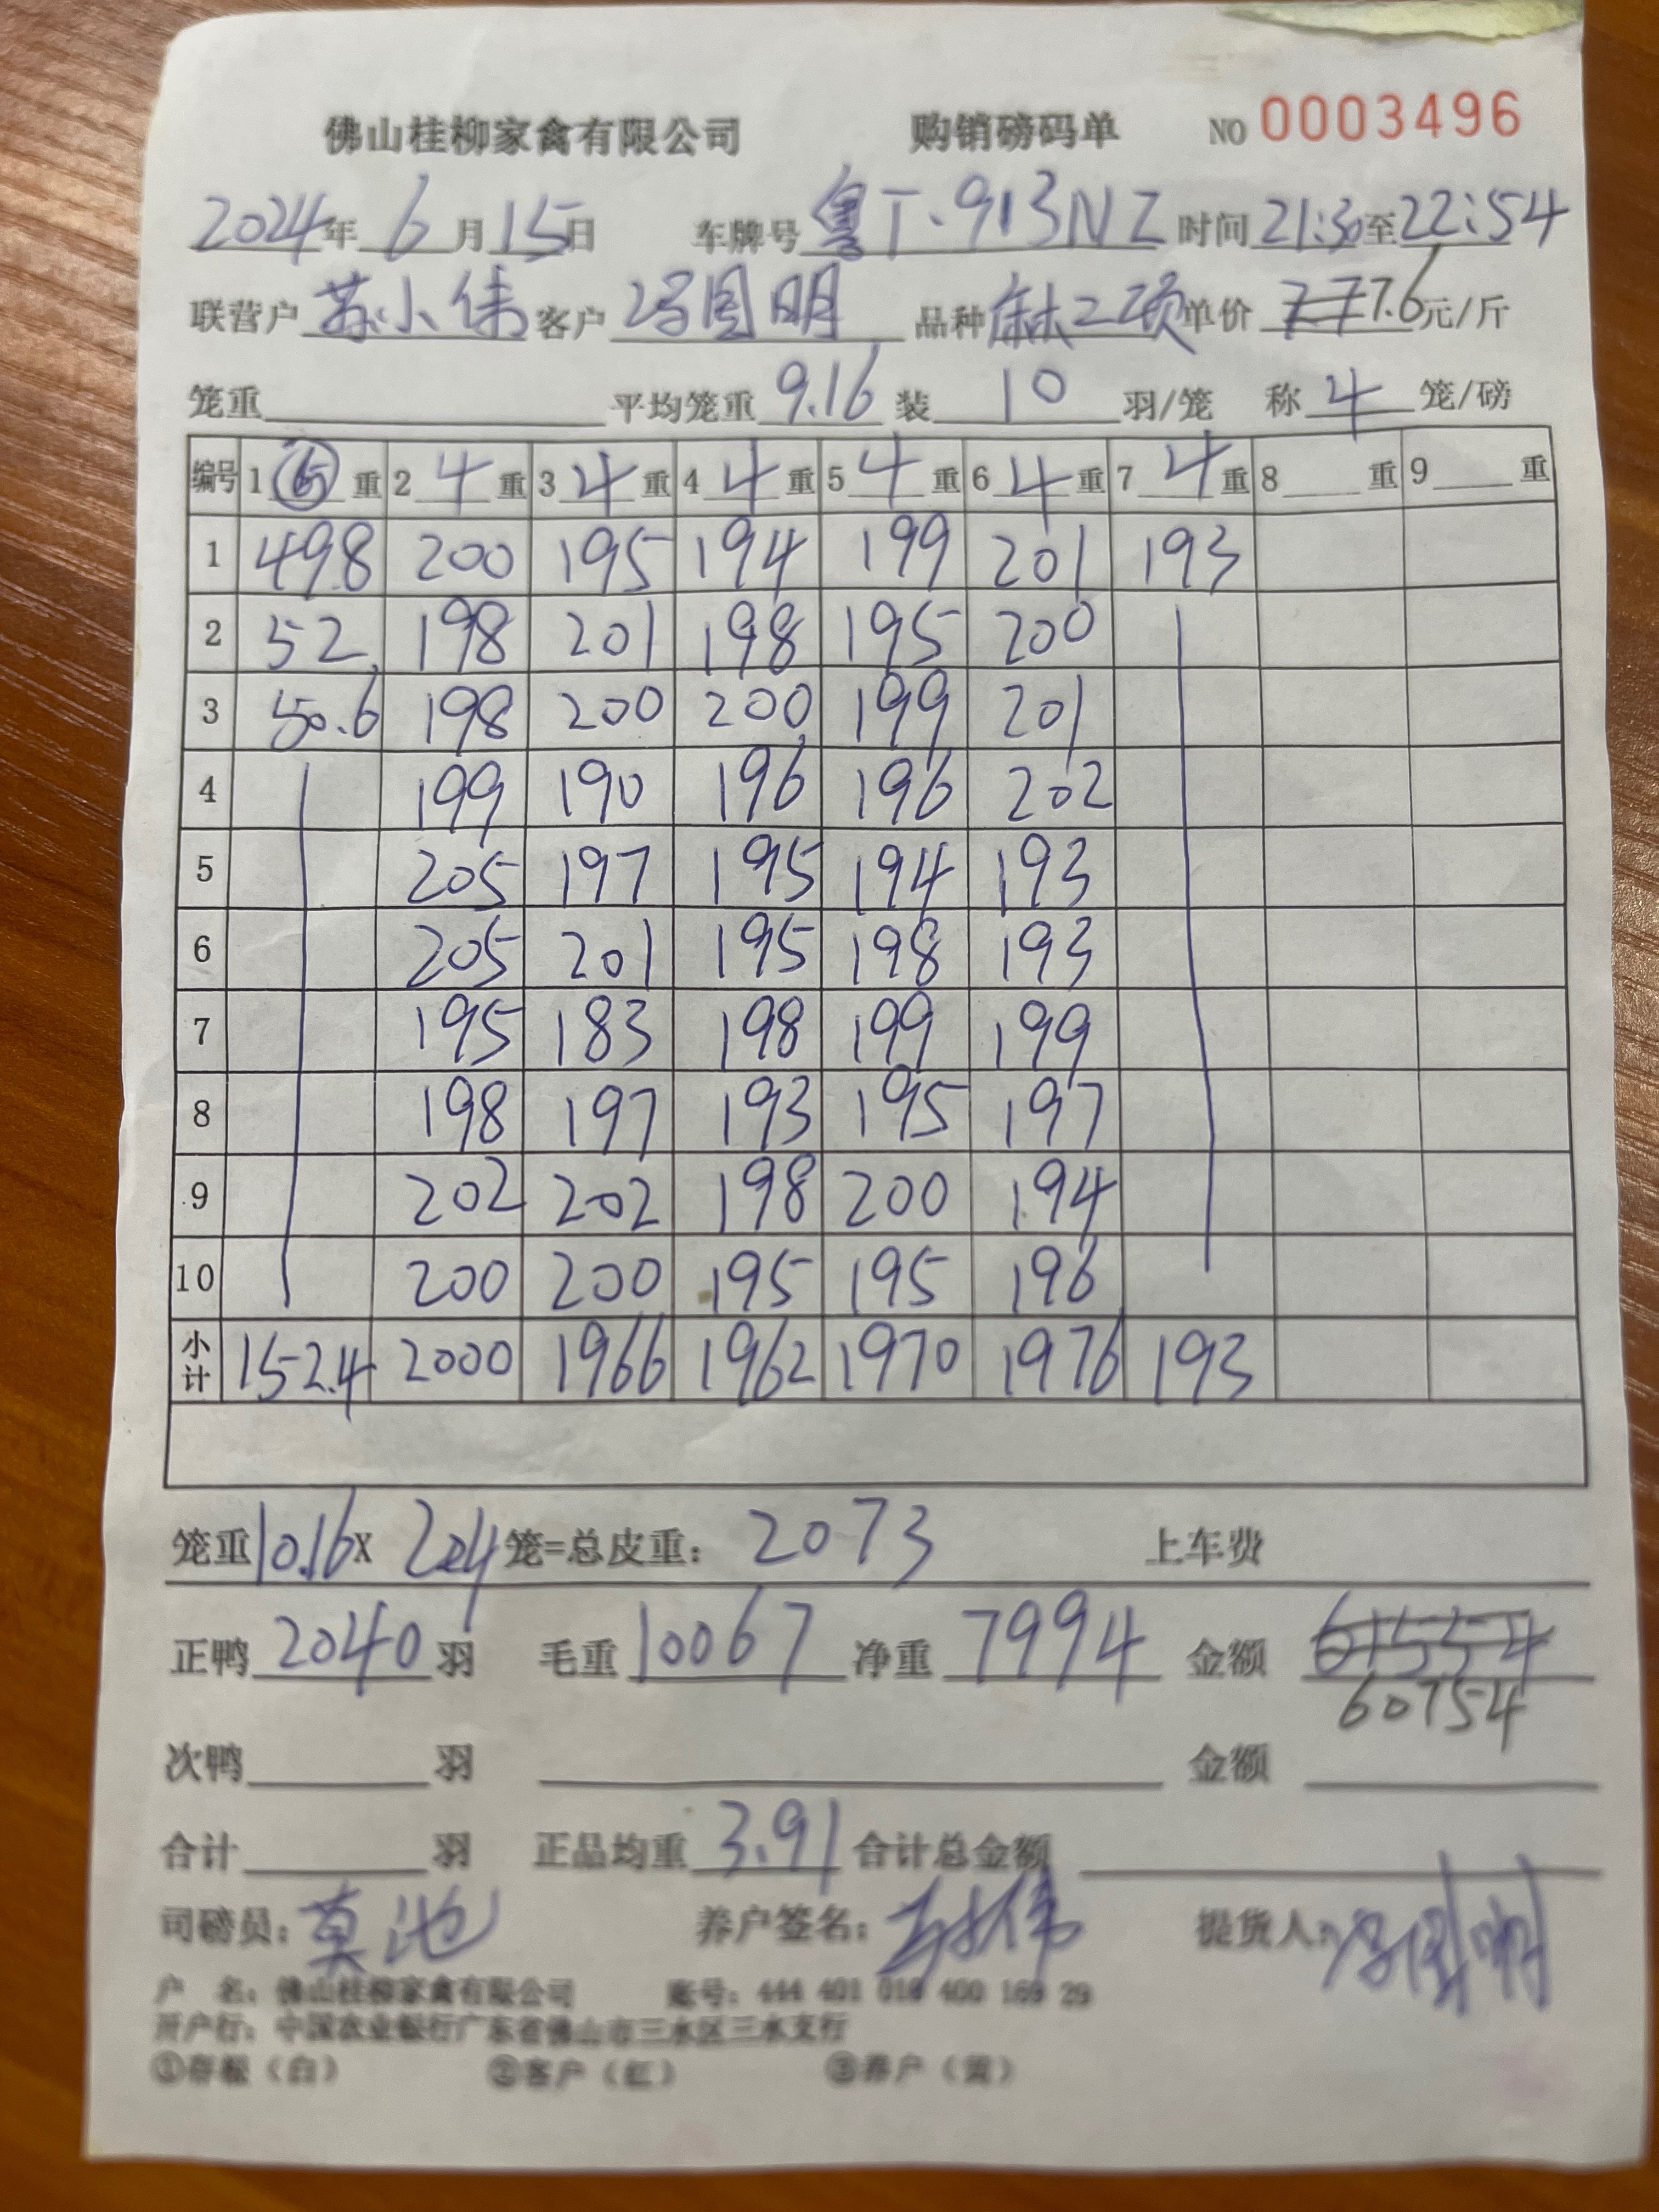 佛山桂柳家禽有限公司 购销磅码单 NO 0003496
2024年 6月15日 车牌号 粤T·913NZ 时间21:30至22:54
联营户 苏小伟 客户 冯国明 品种 单价 7.6元/斤
笼重 平均笼重 9.16 装 10 羽/笼 称 4 笼/磅
编号 1 重 2 4 重 3 4 重 4 4 重 5 4 重 6 4 重 7 4 重 8 重 9 重
1 49.8 200 195 194 199 201 193
2 52 198 201 198 195 200
3 50.6 198 200 200 199 201
4 199 190 196 196 202
5 205 197 195 194 193
6 205 201 195 198 193
7 195 183 198 199 199
8 198 197 193 195 197
9 202 202 198 200 194
10 200 200 195 195 196
小计 152.4 2000 1966 1962 1970 1976 193
笼重10.16X 204 笼=总皮重： 2073 上车费
正鸭 2040 羽 毛重 10067 净重 7994 金额 61554
60754
次鸭 羽 金额
合计 羽 正品均重 3.91 合计总金额
司磅员：莫池 养户签名： 提货人：冯国明
户 名：佛山桂柳家禽有限公司 账号：444 401 010 400 169 29
开户行：中国农业银行广东省佛山市三水区三水支行
①存根（白） ②客户（红） ③养户（黄）